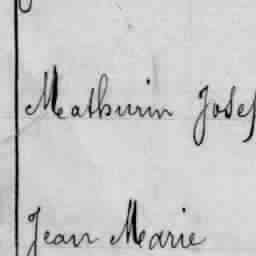 Mathurin Josef
Jean Marie